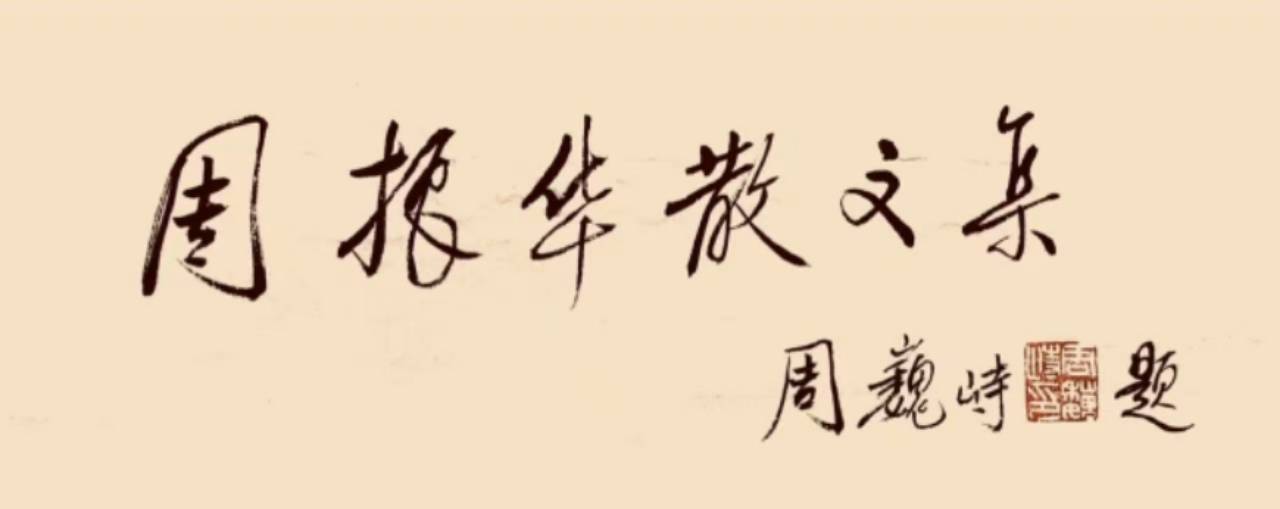 周振华散文集
周巍峙题